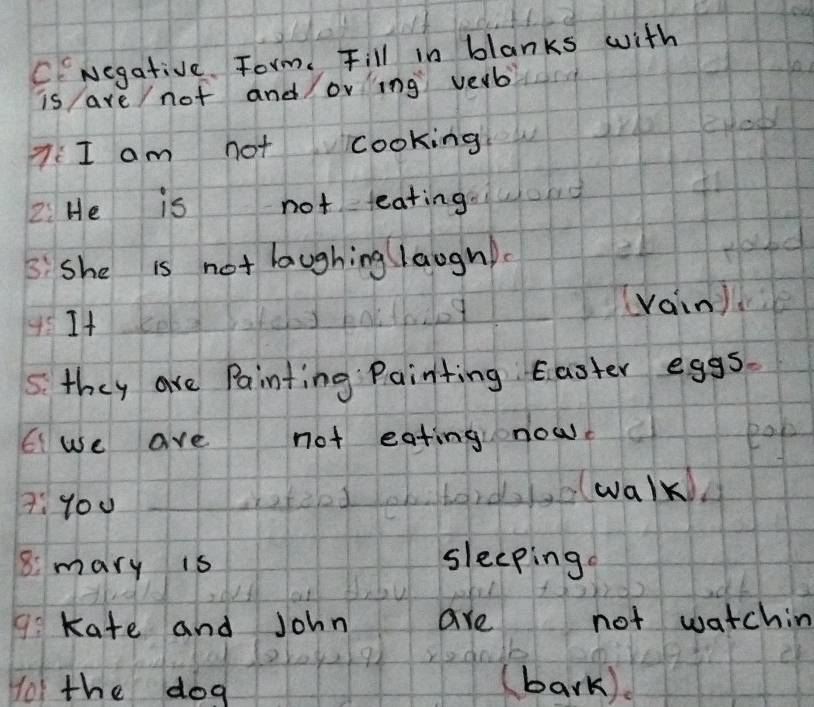 C: Negative Form. Fill in blanks with
is/are/not and/or "ing" verb
1: I am not cooking
2: He is not eating
3: She is not laughing (laugh).
4: It (rain)
5: they are Painting Painting Easter eggs.
6: we are not eating now.
7: you (walk).
8: mary is sleeping.
9: Kate and John are not watchin
10: the dog (bark).